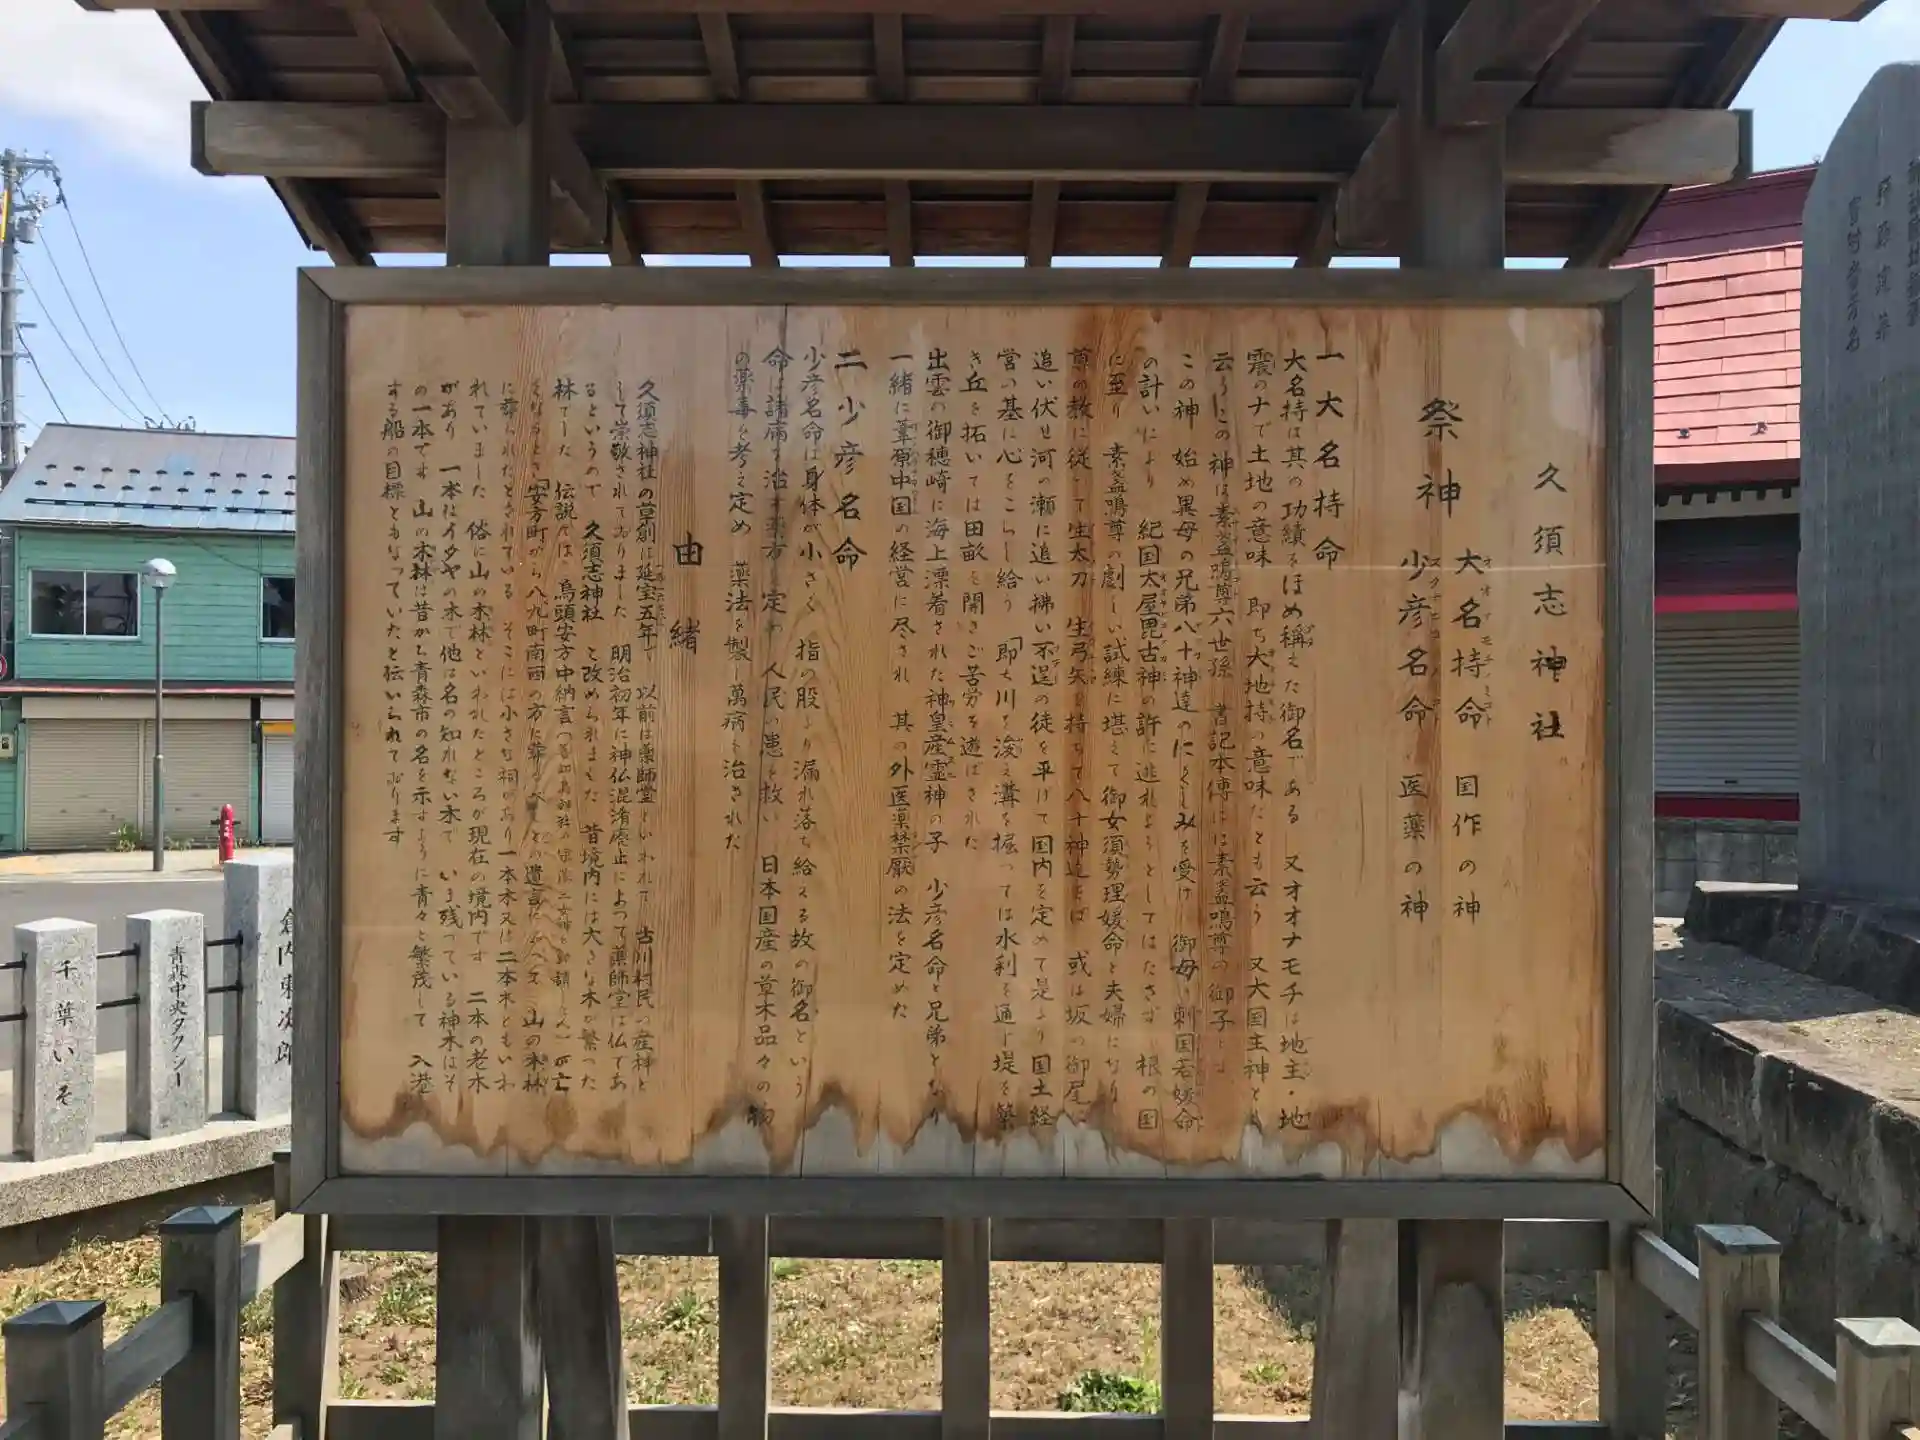 久須志神社
祭神 大名持命 国作の神
少彦名命 医薬の神
一 大名持命
大名持は其の功績をほめ稱えた御名である 又オオナモチは地主・地
震のナで土地の意味 即ち大地持の意味だとも云う 又大国主神とも
云う この神は素盞鳴尊六世孫 書記本傳には素盞鳴尊の御子とは
この神 始め異母の兄弟八十神達のにくしみを受け 御母 刺国若媛命
の計いにより 紀国大屋毘古神の許に逃れようとしてはたさず 根の国
に至り 素盞鳴尊の劇しい試練に堪えて御女須勢理媛命と夫婦になり
尊の教に従いて生太刀 生弓矢を持ちて八十神達をば 或は坂の御尾に
追い伏せ河の瀬に追い拂い不逞の徒を平げて国内を定めて是より国土経
営の基に心をこらし給う 即ち川を浚え溝を掘っては水利を通じ堤を築
き丘を拓いては田畝を開きご苦労を遊ばされた
出雲の御穂崎に海上漂着された神皇産霊神の子 少彦名命と兄弟となり
一緒に葦原中国の経営に尽され 其の外医薬禁厭の法を定めた
二 少彦名命
少彦名命は身体が小さく 指の股より漏れ落ち給える故の御名という
命は諸病を治す薬方を定め 人民の患を救い 日本国産の草木品々の物
の薬毒を考え定め 薬法を製し萬病を治された
由緒
久須志神社の草創は延宝五年で 以前は薬師堂といわれて 古川村民の産神と
して崇敬されておりました 明治初年に神仏混淆廃止によって薬師堂は仏であ
るというので 久須志神社 と改められました 昔境内には大きな木が繁った
林でした 伝説では 烏頭安方中納言 が亡
くなるとき「安方町から八九町南西の方に葬るべし」との遺言 山の木林
に葬られたとされている そこには小さな祠があり一本木又は二本木ともいわ
れていました 俗に山の木林といわれたところが現在の境内です 二本の老木
があり 一本はイタヤの木で他は名の知れない木で いま残っている神木はそ
の一本です 山の木林は昔から青森市の名を示すように青々と繁茂して 入港
する船の目標ともなっていたと伝いられております
千葉いそ
青森中央タクシー
倉内東次郎